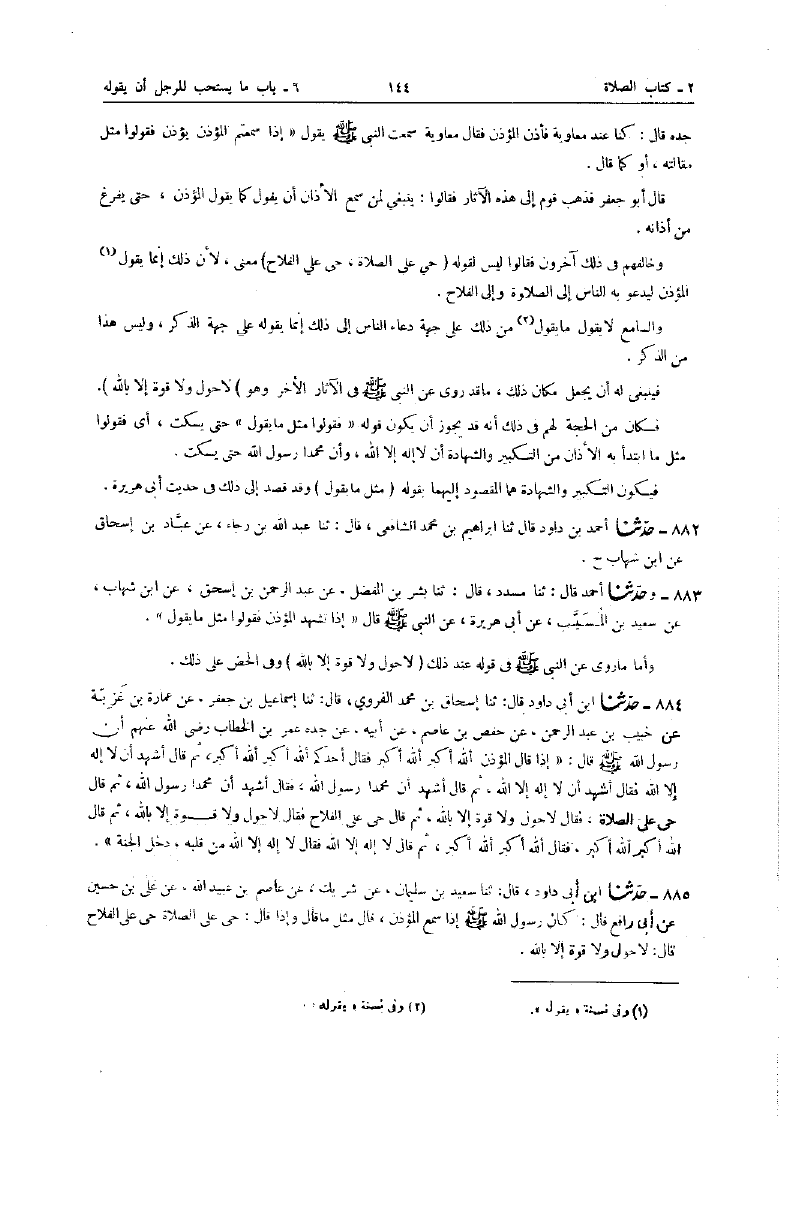 ٢ - كتاب الصلاة ١٤٤ ٦ - باب ما يستحب للرجل أن يقوله
جده قال : كنا عند معاوية فأذن المؤذن فقال معاوية سمعت النبي ﷺ يقول « إذا سمعتم المؤذن يؤذن فقولوا مثل
مقالته ، أو كما قال .
قال أبو جعفر فذهب قوم إلى هذه الآثار فقالوا : ينبغي لمن سمع الأذان أن يقول كما يقول المؤذن ، حتى يفرغ
من أذانه .
وخالفهم فى ذلك آخرون فقالوا ليس لقوله ( حي على الصلاة ، حى علي الفلاح) معنى ، لأن ذلك إنما يقول(١)
المؤذن ليدعو به الناس إلى الصلاوة وإلى الفلاح .
والسامع لايقول مايقول(٢) من ذلك على جهة دعاء الناس إلى ذلك إنما يقوله علي جهة الذكر ، وليس هذا
من الذكر .
فينبغى له أن يجعل مكان ذلك ، ماقد روى عن النبي ﷺ فى الآثار الأخر وهو ) لاحول ولا قوة إلا بالله ).
فكان من الحجة لهم فى ذلك أنه قد يجوز أن يكون قوله « فقولوا مثل مايقول » حتى يسكت ، أى فقولوا
مثل ما ابتدأ به الأذان من التكبير والشهادة أن لاإله إلا الله ، وأن محمدا رسول الله حتى يسكت .
فيكون التكبير والشهادة هما المقصود إليهما بقوله ( مثل مايقول ) وقد قصد إلى ذلك فى حديث أبى هريرة .
٨٨٢ - حدثنا أحمد بن داود قال ثنا ابراهيم بن محمد الشافعى ، قال : ثنا عبد الله بن رجاء ، عن عبّاد بن إسحاق
عن ابن شهاب ح .
٨٨٣ - وحدثنا أحمد قال : ثنا مسدد ، قال : ثنا بشر بن المفضل . عن عبد الرحمن بن إسحق ، عن ابن شهاب ،
عن سعيد بن المسيّب ، عن أبى هريرة ، عن النبي ﷺ قال « إذا تشهد المؤذن فقولوا مثل مايقول » .
وأما ماروى عن النبي ﷺ فى قوله عند ذلك ( لاحول ولا قوة إلا بالله ) وفى الحض على ذلك .
٨٨٤ - حدثنا ابن أبى داود قال: ثنا إسحاق بن محمد الفروي، قال: ثنا إسماعيل بن جعفر . عن عمارة بن غزية
عن خبيب بن عبد الرحمن . عن حفص بن عاصم . عن أبيه . عن جده عمر بن الخطاب رضى الله عنهم أن
رسول الله ﷺ قال : « إذا قال المؤذن الله أكبر الله أكبر فقال أحدكم الله أكبر الله أكبر، ثم قال أشهد أن لا إله
إلا الله فقال أشهد أن لا إله إلا الله ، ثم قال أشهد أن محمدا رسول الله ، فقال أشهد أن محمدا رسول الله ، ثم قال
حى على الصلاة ، فقال لاحول ولا قوة إلا بالله ، ثم قال حى على الفلاح فقال لاحول ولا قوة إلا بالله ، ثم قال
الله أكبر الله أكبر . فقال الله أكبر الله أكبر ، ثم قال لا إله إلا الله فقال لا إله إلا الله من قلبه . دخل الجنة » .
٨٨٥ - حدثنا ابن أبى داود ، قال: ثنا سعيد بن سليمان ، عن شريك ، عن عاصم بن عبيد الله . عن على بن حسين
عن أبى رافع قال : كان رسول الله ﷺ إذا سمع المؤذن ، قال مثل ماقال وإذا قال : حى على الصلاة حى على الفلاح
قال: لاحول ولا قوة إلا بالله .
(١) وفى نسخة « يقول ». (٢) وفى نسخة « يقوله »